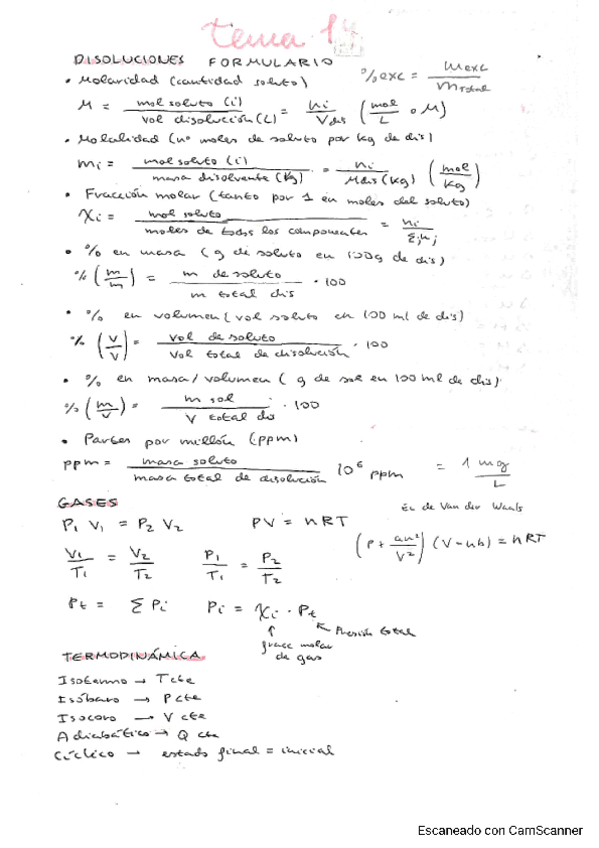 tema 1
DISOLUCIONES FORMULARIO
• Molaridad (cantidad soluto) %exc = m exc / m total
M = mol soluto (i) / vol disolución (L) = ni / Vdis (mol/L o M)
• Molalidad (nº moles de soluto por kg de dis)
mi = mol soluto (i) / masa disolvente (kg) = ni / Mdis (kg) (mol/kg)
• Fracción molar (tanto por 1 en moles del soluto)
Xi = mol soluto / moles de todos los componentes = ni / Σj nj
• % en masa (g de soluto en 100g de dis)
% (m/m) = m de soluto / m total dis · 100
• % en volumen (vol soluto en 100 ml de dis)
% (V/V) = vol de soluto / vol total de disolución · 100
• % en masa/volumen (g de sol en 100 ml de dis)
% (m/V) = m sol / V total dis · 100
• Partes por millón (ppm)
ppm = masa soluto / masa total de disolución 10⁶ ppm = 1 mg / L
GASES
Ec de Van der Waals
P₁ V₁ = P₂ V₂ PV = nRT
(P + an²/V²) (V - nb) = nRT
V₁/T₁ = V₂/T₂ P₁/T₁ = P₂/T₂
Pt = Σ Pi Pi = Xi · Pt
↑ ↖ Presión total
fracc molar
de gas
TERMODINÁMICA
Isotermo → T cte
Isóbaro → P cte
Isocoro → V cte
Adiabático → Q cte
Cíclico → estado final = inicial
Escaneado con CamScanner